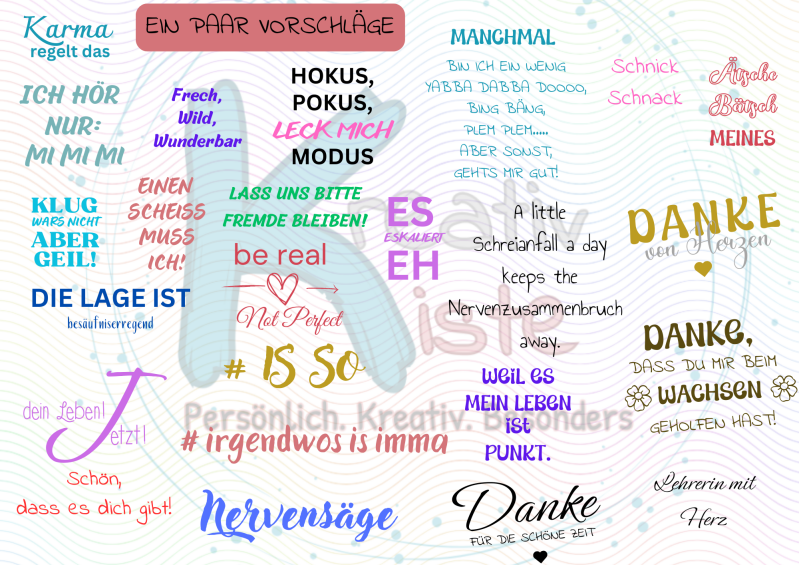 Karma
regelt das
EIN PAAR VORSCHLÄGE
MANCHMAL
BIN ICH EIN WENIG
YABBA DABBA DOOOO,
BING BÄNG,
PLEM PLEM.....
ABER SONST,
GEHTS MIR GUT!
Schnick
Schnack
Ätsche
Bätsch
MEINES
ICH HÖR
NUR:
MI MI MI
Frech,
Wild,
Wunderbar
HOKUS,
POKUS,
LECK MICH
MODUS
KLUG
WARS NICHT
ABER
GEIL!
EINEN
SCHEISS
MUSS
ICH!
LASS UNS BITTE
FREMDE BLEIBEN!
ES
ESKALIERT
EH
A little
Schreianfall a day
keeps the
Nervenzusammenbruch
away.
DANKE
von Herzen
be real
Not Perfect
DIE LAGE IST
besäufniserregend
# IS SO
DANKE,
DASS DU MIR BEIM
WACHSEN
GEHOLFEN HAST!
dein Leben!
Jetzt!
WEIL ES
MEIN LEBEN
IST
PUNKT.
# irgendwos is imma
Schön,
dass es dich gibt!
Nervensäge
Danke
FÜR DIE SCHÖNE ZEIT
Lehrerin mit
Herz
Kreativ
Kiste
Persönlich. Kreativ. Besonders